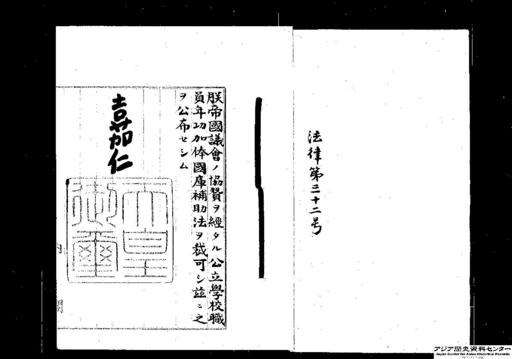 法律第三十二号
朕帝國議會ノ協贊ヲ經タル公立學校職
員年功加俸國庫補助法ヲ裁可シ茲ニ之
ヲ公布セシム
嘉仁
天皇
御璽
アジア歴史資料センター
Japan Center for Asian Historical Records